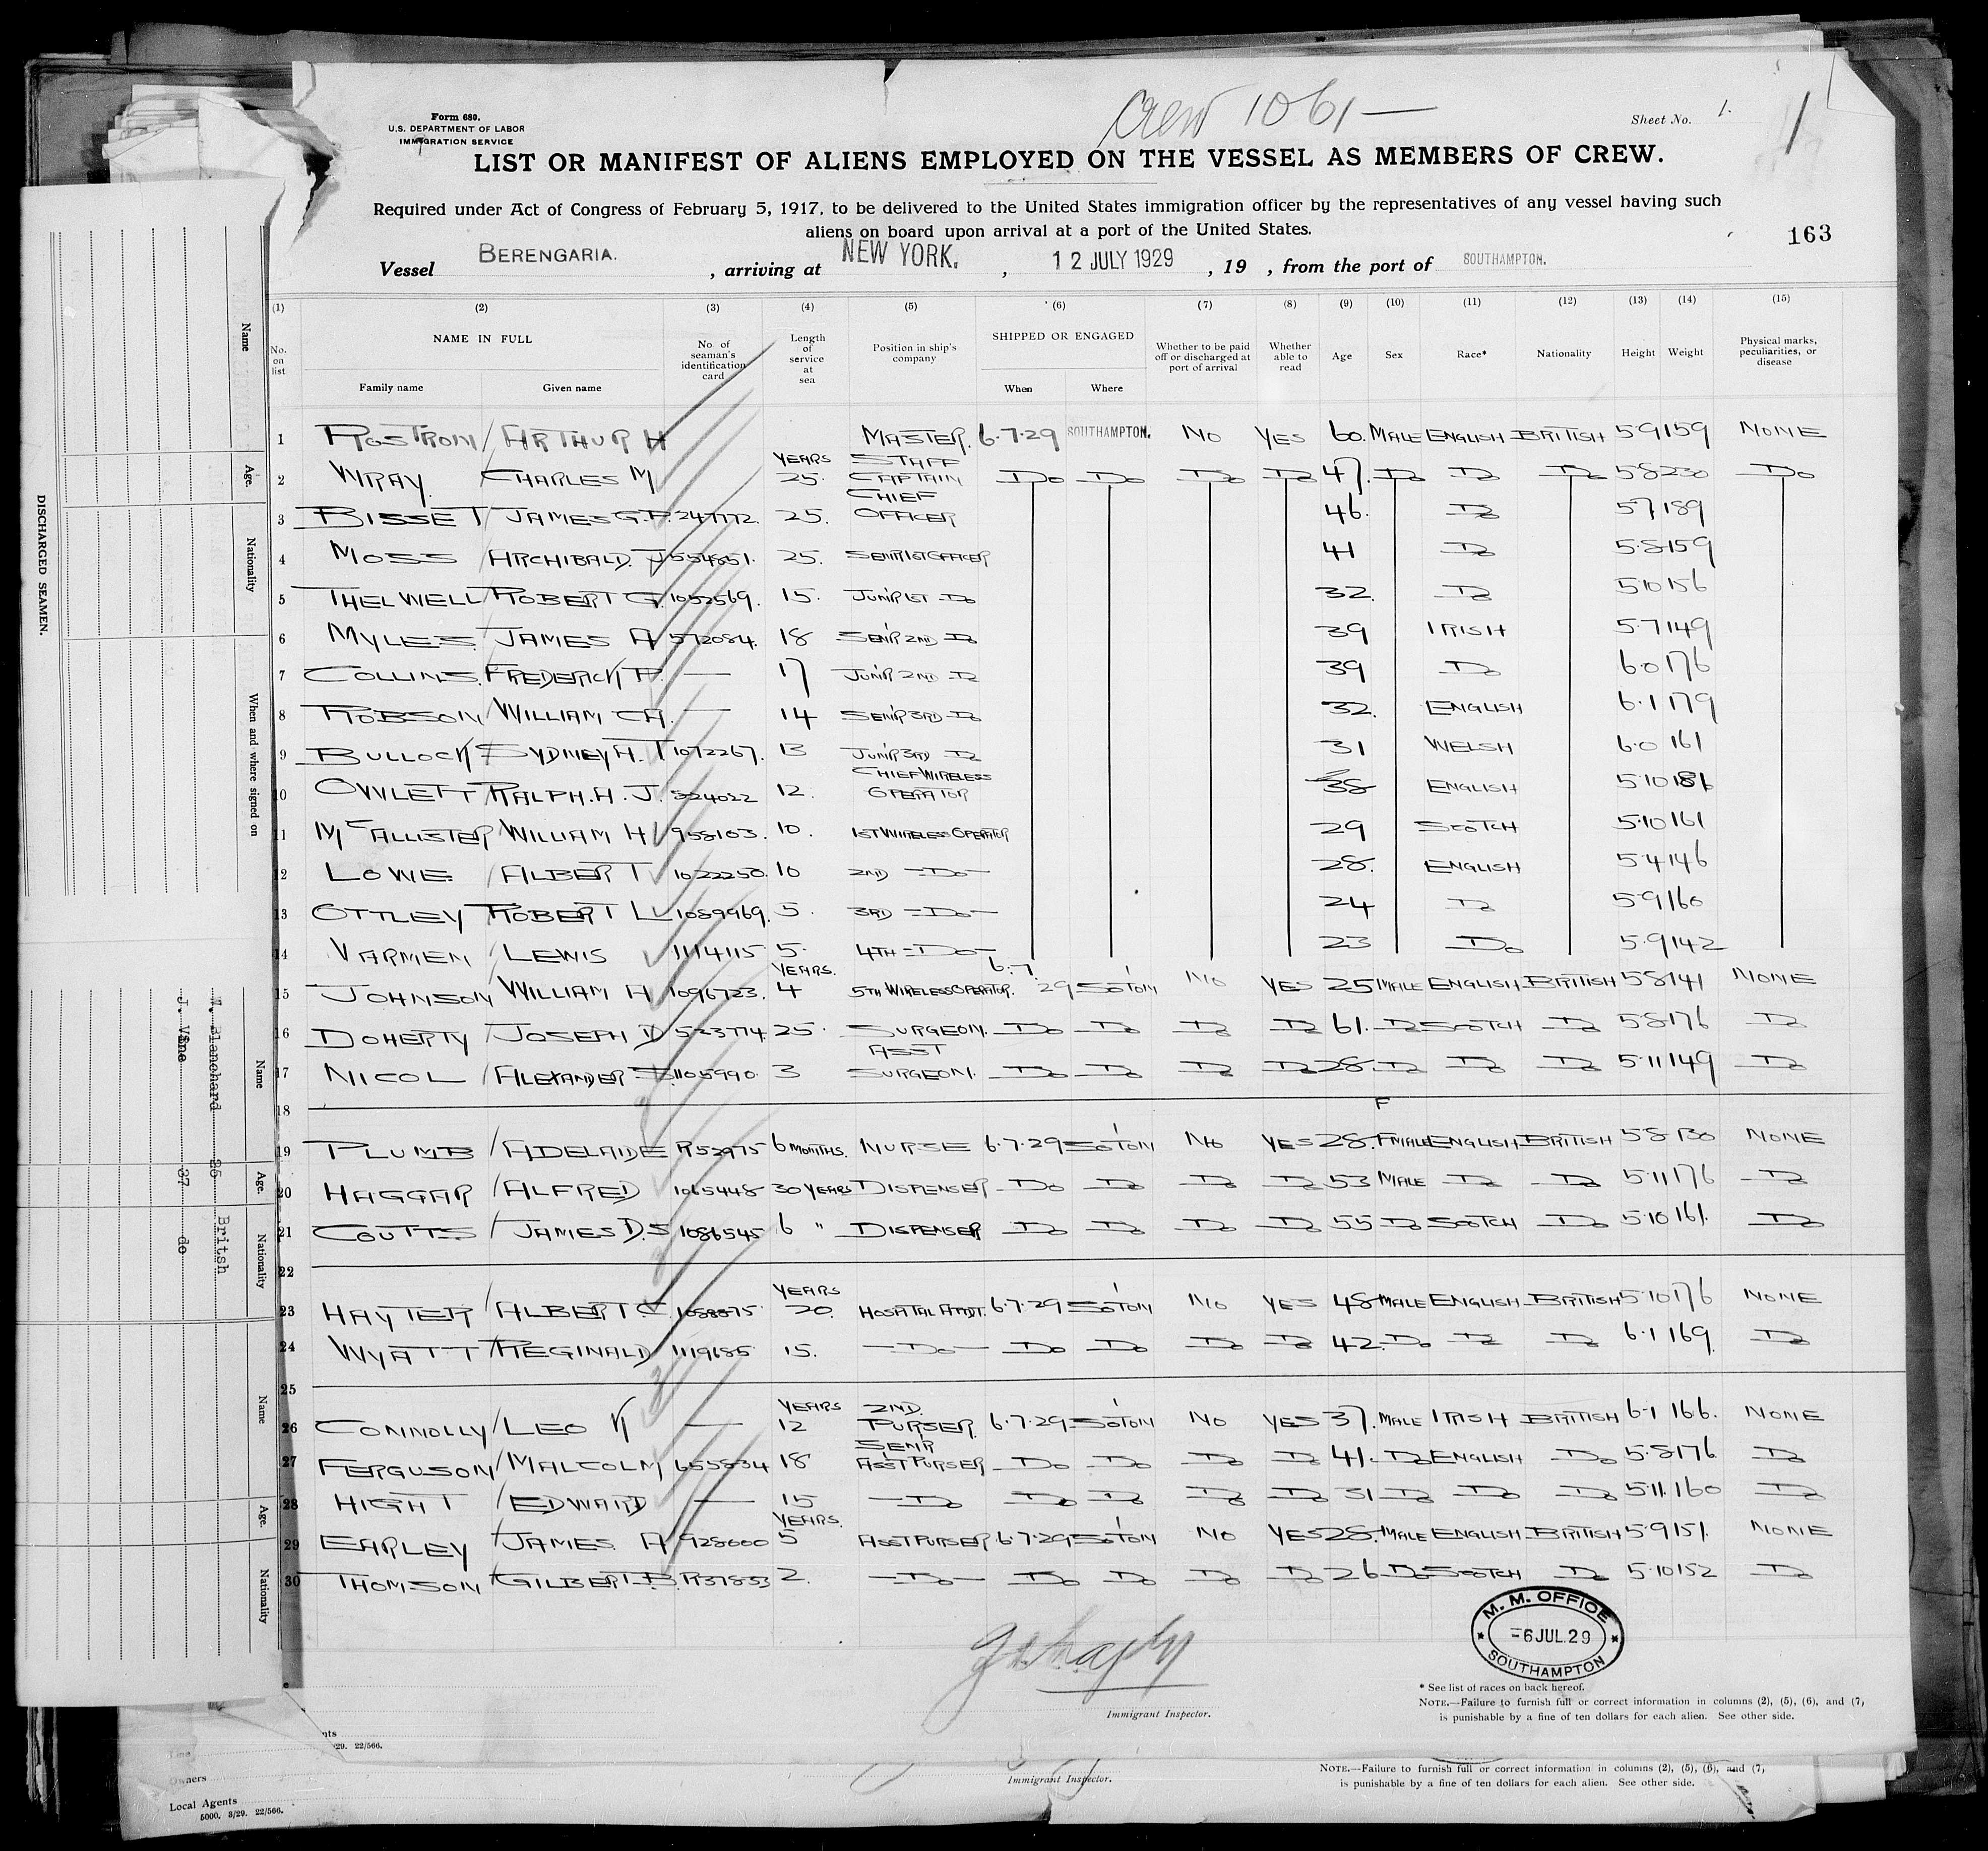 Crew 1061 —
Form 680.
U.S. DEPARTMENT OF LABOR
IMMIGRATION SERVICE
Sheet No. 1.
1
LIST OR MANIFEST OF ALIENS EMPLOYED ON THE VESSEL AS MEMBERS OF CREW.
Required under Act of Congress of February 5, 1917, to be delivered to the United States immigration officer by the representatives of any vessel having such
aliens on board upon arrival at a port of the United States.
163
Vessel BERENGARIA. , arriving at NEW YORK. , 12 JULY 1929 , 19 , from the port of SOUTHAMPTON.
(1) (2) (3) (4) (5) (6) (7) (8) (9) (10) (11) (12) (13) (14) (15)
No. on list NAME IN FULL Family name Given name No of seaman's identification card Length of service at sea Position in ship's company SHIPPED OR ENGAGED When Where Whether to be paid off or discharged at port of arrival Whether able to read Age Sex Race* Nationality Height Weight Physical marks, peculiarities, or disease
1 ROSTRON / ARTHUR H MASTER. 6.7.29 SOUTHAMPTON. NO YES 60. MALE ENGLISH BRITISH 5.9 159 NONE
2 WRAY. CHARLES M YEARS 25. STAFF CAPTAIN Do Do Do Do 47. Do Do Do 5.8 230 Do
3 BISSET / JAMES G.P. 247772. 25. CHIEF OFFICER 46. Do 5.7 189
4 MOSS ARCHIBALD. J 554851. 25. SENR 1ST OFFICER 41 Do 5.8 159
5 THELWELL / ROBERT G. 1052569. 15. JUNR 1ST Do 32. Do 5.10 156
6 MYLES / JAMES A 572084. 18 SENR 2ND Do 39 IRISH 5.7 149
7 COLLINS. FREDERICK P. — 17 JUNR 2ND Do 39 Do 6.0 176
8 ROBSON / WILLIAM CH. — 14 SENR 3RD Do 32. ENGLISH 6.1 179
9 BULLOCK SYDNEY H. T 1072267. 13 JUNR 3RD Do 31 WELSH 6.0 161
10 OWLETT RALPH. H. J. 324022 12. CHIEF WIRELESS OPERATOR 38 ENGLISH 5.10 186
11 McALLISTER WILLIAM H 958103. 10. 1ST WIRELESS OPERATOR 29 SCOTCH 5.10 161
12 LOWE / ALBERT 1022250. 10 2ND Do 28. ENGLISH 5.4 146
13 OTTLEY ROBERT L 1089969. 5. 3RD Do 24 Do 5.9 160
14 VARMEN / LEWIS 1114115 5. 4TH Do 23 Do 5.9 142
15 JOHNSON WILLIAM H 1096723. YEARS. 4 5TH WIRELESS OPERATOR. 6.7.29 SO'TON NO YES 25 MALE ENGLISH BRITISH 5.8 141 NONE
16 DOHERTY / JOSEPH D 523774. 25. SURGEON. Do Do Do Do 61. Do SCOTCH Do 5.8 176 Do
17 NICOL / ALEXANDER 1105990. 3 ASST SURGEON. Do Do Do Do 28. Do Do Do 5.11 149 Do
18 F
19 PLUMB / ADELAIDE R52975 6 MONTHS. NURSE 6.7.29 SO'TON NO YES 28. FMALE ENGLISH BRITISH 5.8 130 NONE
20 HAGGAR / ALFRED 1065448 30 YEARS DISPENSER Do Do Do Do 53 MALE Do Do 5.11 176 Do
21 COUTTS / JAMES D.S 1086545 6 " DISPENSER Do Do Do Do 55 Do SCOTCH Do 5.10 161. Do
22
23 HAYTER / ALBERT C. 1058875. YEARS 20. HOSPITAL ATTDT. 6.7.29 SO'TON NO YES 48 MALE ENGLISH BRITISH 5.10 176 NONE
24 WYATT REGINALD 1119685 15. Do Do Do Do Do 42. Do Do Do 6.1 169. Do
25
26 CONNOLLY / LEO K — YEARS 12 2ND. PURSER. 6.7.29 SO'TON NO YES 37. MALE IRISH BRITISH 6.1 166. NONE
27 FERGUSON / MALCOLM 655834 18 SENR ASST PURSER Do Do Do Do 41. Do ENGLISH Do 5.8 176 Do
28 HIGHT / EDWARD — 15 Do Do Do Do Do 31 Do Do Do 5.11. 160 Do
29 EARLEY JAMES A 928000 YEARS. 5 ASST PURSER 6.7.29 SO'TON NO YES 28. MALE ENGLISH BRITISH 5.9 151. NONE
30 THOMSON / GILBERT B. R37853 2. Do Do Do Do Do 26 Do SCOTCH Do 5.10 152 Do
M. M. OFFICE
-6 JUL.29
SOUTHAMPTON
Immigrant Inspector.
* See list of races on back hereof.
NOTE.—Failure to furnish full or correct information in columns (2), (5), (6), and (7,
is punishable by a fine of ten dollars for each alien. See other side.
nts
/29. 22/566.
Line
Owners
Local Agents
5000. 3/29. 22/566.
Immigrant Inspector.
NOTE.—Failure to furnish full or correct information in columns (2), (5), (6), and (7,
is punishable by a fine of ten dollars for each alien. See other side.
DISCHARGED SEAMEN.
Name Age. Nationality When and where signed on
Name Age. Nationality
Name Age. Nationality
Blanchard 25 Britsh
J. Vine 37 do